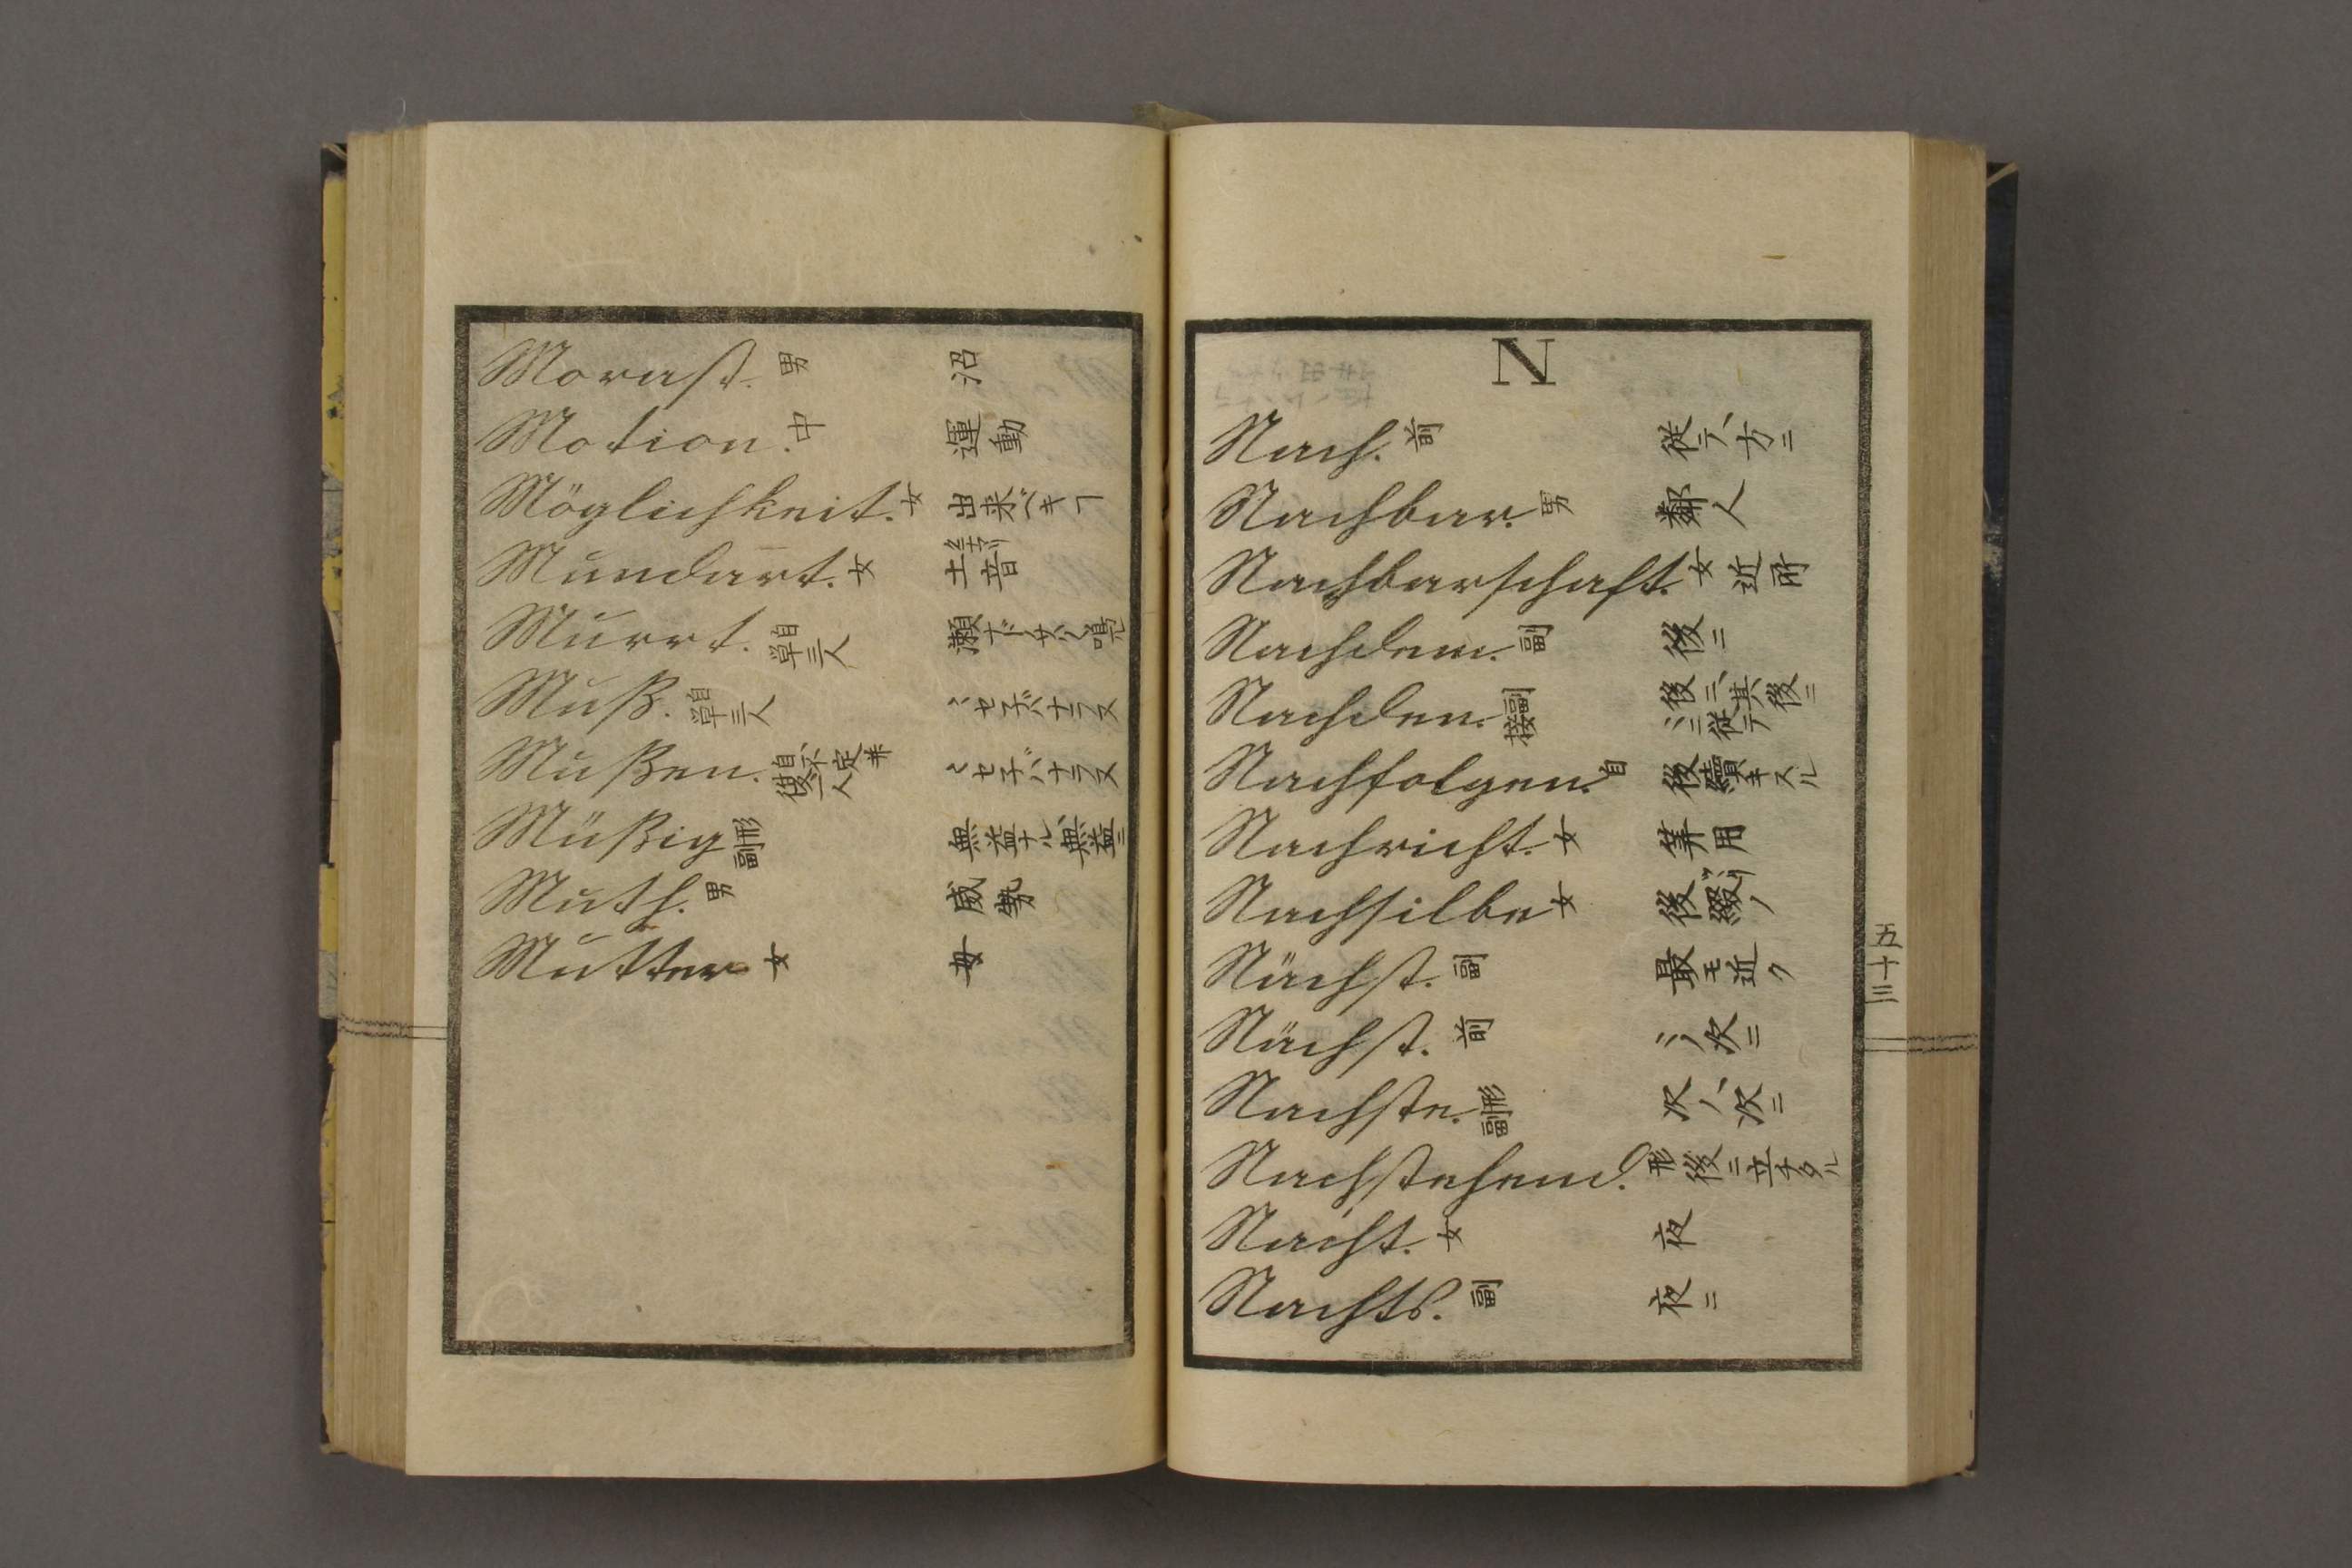 Morast. 男 沼
Motion. 中 運動
Möglichkeit. 女 出来ベキヿ
Mundart. 女 土音
Murrt. 自単三人 瀬ガサハ〳〵鳴ル
Muß. 自単三人 ミセ子バナラヌ
Mußen. 自不定並複一人 ミセ子バナラヌ
Müßig 形副 無益ナル、無益ニ
Muth. 男 威勢
Mutter 女 母
N
Nach. 前 従テ、方ニ
Nachbar. 男 鄰人
Nachbarschaft. 女 近所
Nachdem. 副 後ニ
Nachden. 副接 後ニ、其後ニ ミニ従テ
Nachfolgen. 自 後續キスル
Nachricht. 女
Nachsilbe 女 後ノ綴リ
Nächst. 副 最モ近ク
Nächst. 前 ミノ次ニ
Nachste. 形副 次ノ、次ニ
Nachstehend. 形 後ニ立チタル
Nacht. 女 夜
Nachts. 副 夜ニ
五十三